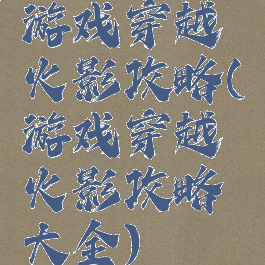 游戏穿越
火影攻略(
游戏穿越
火影攻略
大全)